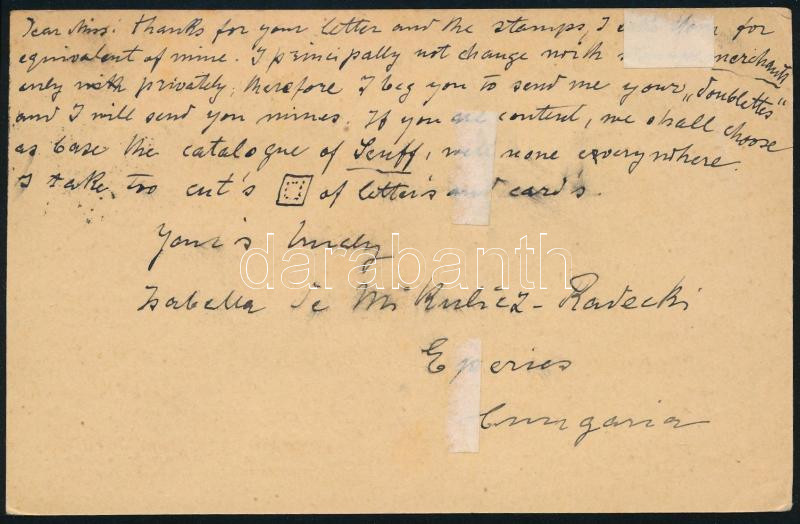 Dear Miss! Thanks for your letter and the stamps, I for
equivalent of mine. I principally not change with merchants
only with privately, therefore I beg you to send me your „doublettes"
and I will send you mines. If you are content, we shall choose
as base the catalogue of Senff, well none everywhere.
I take too cut's of letter's and card's.
Your's truly
Isabella de Kulicz-Radecki
Eperies
Hungaria
darabanth